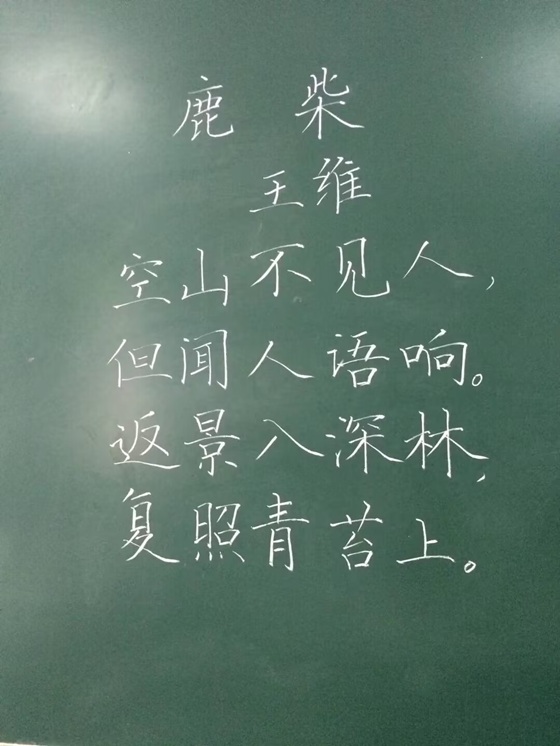 鹿 柴
王维
空山不见人，
但闻人语响。
返景入深林，
复照青苔上。